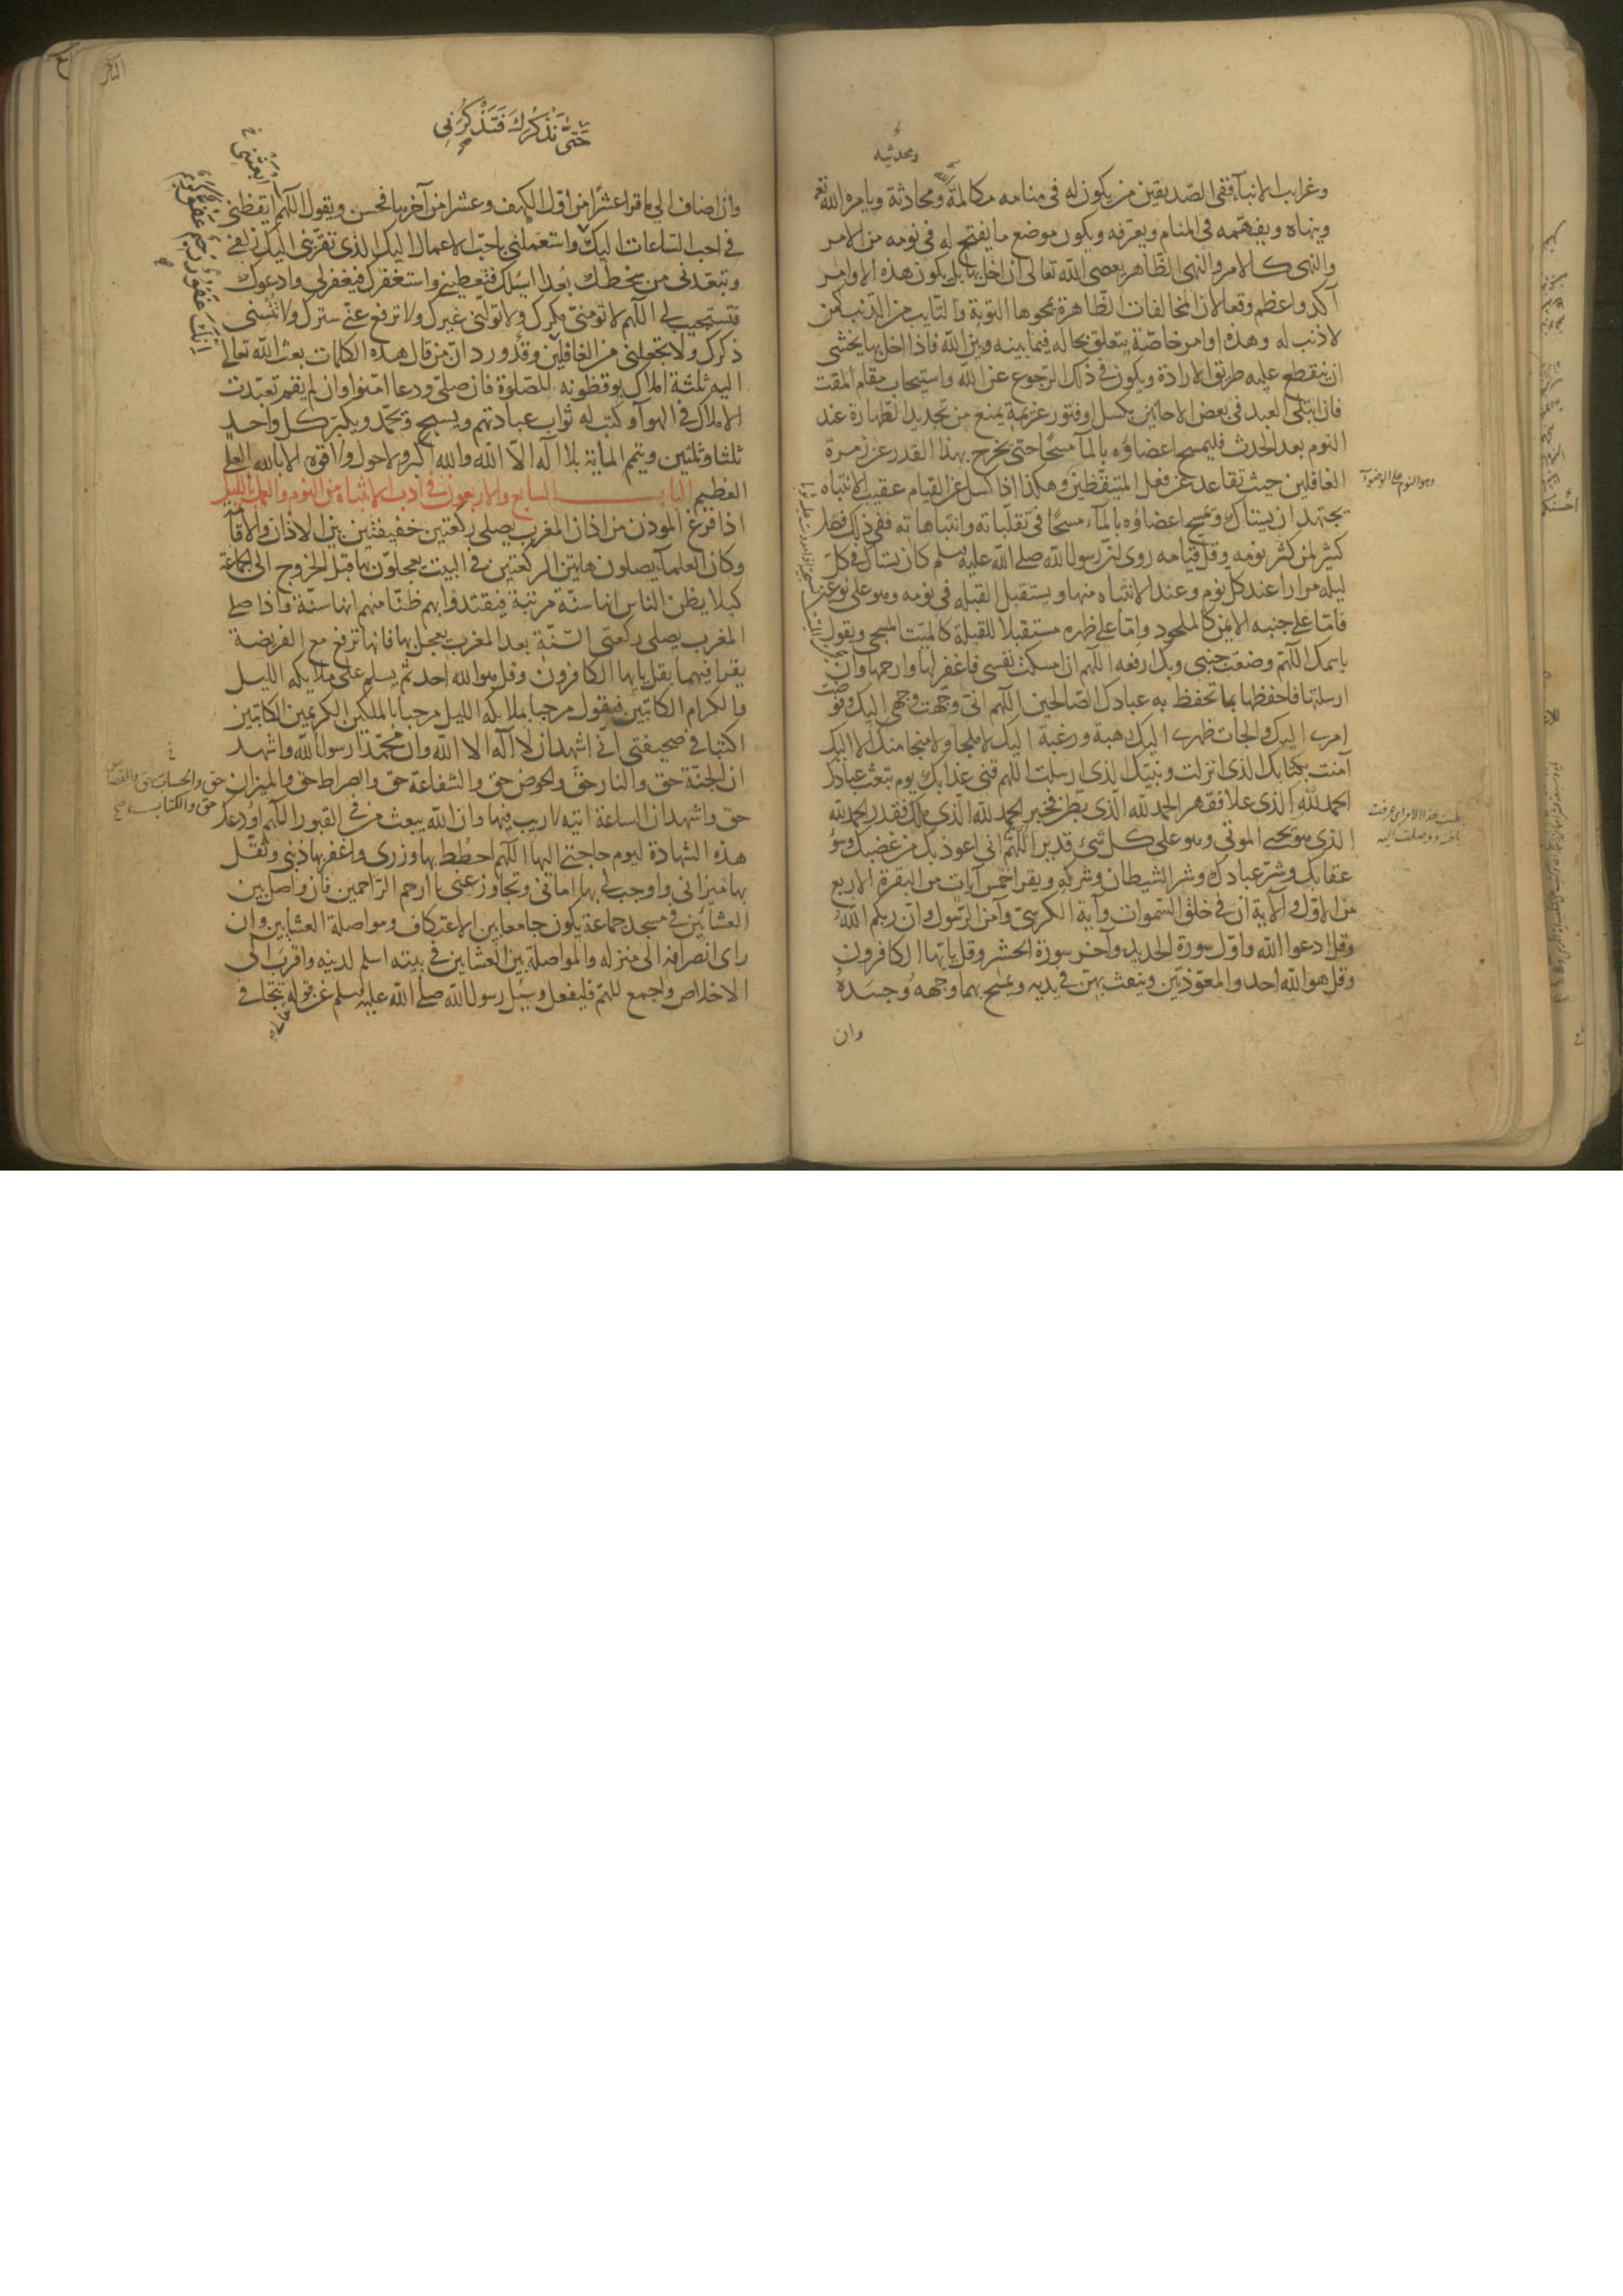 ومحدثيه
وغرايب الانبآء ففى الصديقين من يكون له فى منامه مكالمة ومحادثة ويامره الله تع
وينهاه ويفهمه فى المنام ويعرفه ويكون موضع ما يفتح له فى نومه من الامر
والنهى كالامر والنهى الظاهر يعصى الله تعالى ان اخل بهما بل يكون هذه الاوامر
آكد واعظم وقعا لان المخالفات الظاهرة يمحوها التوبة والتايب من الذنب كمن
لا ذنب له وهذه اوامر خاصة يتعلق بحاله فيما بينه وبين الله فاذا اخل بها يخشى
ان ينقطع عليه طريق الارادة ويكون فى ذلك الرجوع عن الله واستيجاب مقام المقت
فان ابتلى العبد فى بعض الاحايين بكسل او فتور عزيمة يمنع من تجديد الطهارة عند
النوم بعد الحدث فليمسح اعضاؤه بالمآء مسحا حتى يخرج بهذا القدر عن زمرة
الغافلين حيث تقاعد عن فعل المتيقظين وهكذا اذا كسل عن القيام عقيب الانتباه
يجتهد ان يستاك ويمسح اعضاؤه بالمآء مسحا فى تقلباته وانتباهاته ففى ذلك فضل
كثير لمن كثر نومه وقل قيامه روى ان رسول الله صلى الله عليه وسلم كان يستاك فى كل
ليله مرارا عند كل نوم وعند الانتباه منها ويستقبل القبله فى نومه وهو على نوعين
فاما على جنبه الايمن كالملحود واما على ظهره مستقبلا للقبلة كالميت المسجى ويقول
باسمك اللهم وضعت جنبى وبك ارفعه اللهم ان امسكت نفسى فاغفر لها وارحمها وان
ارسلتها فاحفظها بما تحفظ به عبادك الصالحين اللهم انى وجهت وجهى اليك وفوضت
امرى اليك والجات ظهرى اليك رهبة ورغبة اليك لا ملجا ولا منجا منك الا اليك
آمنت بكتابك الذى انزلت ونبيك الذى ارسلت اللهم قنى عذابك يوم تبعث عبادك
الحمد لله الذى علا فقهر الحمد لله الذى بطن فخبر الحمد لله الذى ملك فقدر الحمد لله
الذى هو يحيى الموتى وهو على كل شئ قدير اللهم انى اعوذ بك من غضبك وسؤ
عقابك وشر عبادك وشر الشيطان وشركه ويقرا خمس آيات من البقرة الاربع
من الاول والاية ان فى خلق السموات وآية الكرسى وآمن الرسول وان ربكم الله
وقل ادعوا الله واول سورة الحديد وآخر سورة الحشر وقل يايها الكافرون
وقل هو الله احد والمعوذتين وينفث بهن فى يديه ويمسح بهما وجهه وجسده
وان
وهو النوم على الوضوء
حتى نذكرك فتذكرنى
وان اضاف الى ما قرا عشرا من اول الكهف وعشرا من آخرها فحسن ويقول اللهم ايقظنى
فى احب الساعات اليك واستعملنى باحب الاعمال اليك الذى تقربنى اليك زلفى
وتبعدنى من سخطك بعدا اسئلك فتعطينى واستغفرك فيغفر لى وادعوك
فتستجيب لى اللهم لا تومنى مكرك ولا تولنى غيرك ولا ترفع عنى سترك ولا تنسنى
ذكرك ولا تجعلنى من الغافلين وقد ورد ان من قال هذه الكلمات بعث الله تعالى
اليه ثلثة املاك يوقظونه للصلوة فان صلى ودعا امنوا وان لم يقم تعبدت
الاملاك فى الهوآء وكتب له ثواب عبادتهم ويسبح ويحمد ويكبر كل واحد
ثلثا وثلثين ويتمم المأية بلا اله الا الله والله اكبر ولا حول ولا قوة الا بالله العلى
العظيم الباب السابع والاربعون فى ادب الانتباه من النوم والعمل بالليل
اذا فرغ الموذن من اذان المغرب يصلى ركعتين خفيفتين بين الاذان والاقامة
وكان العلمآء يصلون هاتين الركعتين فى البيت يعجلون بها قبل الخروج الى الجماعة
كيلا يظن الناس انها سنة مرتبة فيقتدوا بهم ظنا منهم انها سنة فاذا صلى
المغرب يصلى ركعتى السنة بعد المغرب يعجل بها فانها ترفع مع الفريضة
يقرا فيهما بقل يايها الكافرون وقل هو الله احد ثم يسلم على ملايكه الليل
والكرام الكاتبين فيقول مرحبا بملايكه الليل مرحبا بالملكين الكريمين الكاتبين
اكتبا فى صحيفتى انى اشهد ان لا اله الا الله وان محمدا رسول الله واشهد
ان الجنة حق والنار حق والحوض حق والشفاعة حق والصراط حق والميزان حق والحساب حق والقصاص
حق والكتاب
حق واشهد ان الساعة اتيه لا ريب فيها وان الله يبعث من فى القبور اللهم اودعك
هذه الشهادة ليوم حاجتى اليها اللهم احطط بها وزرى واغفر بها ذنبى وثقل
بها ميزانى واوجب لى بها امانى وتجاوز عنى يا ارحم الراحمين فان واصل بين
العشائين فى مسجد جماعة يكون جامعا بين الاعتكاف ومواصلة العشايين وان
راى انصرافه الى منزله والمواصلة بين العشايين فى بيته اسلم لدينه واقرب الى
الاخلاص واجمع للهم فليفعل وسئل رسول الله صلى الله عليه وسلم عن قوله تتجافى
انك غفور رحيم